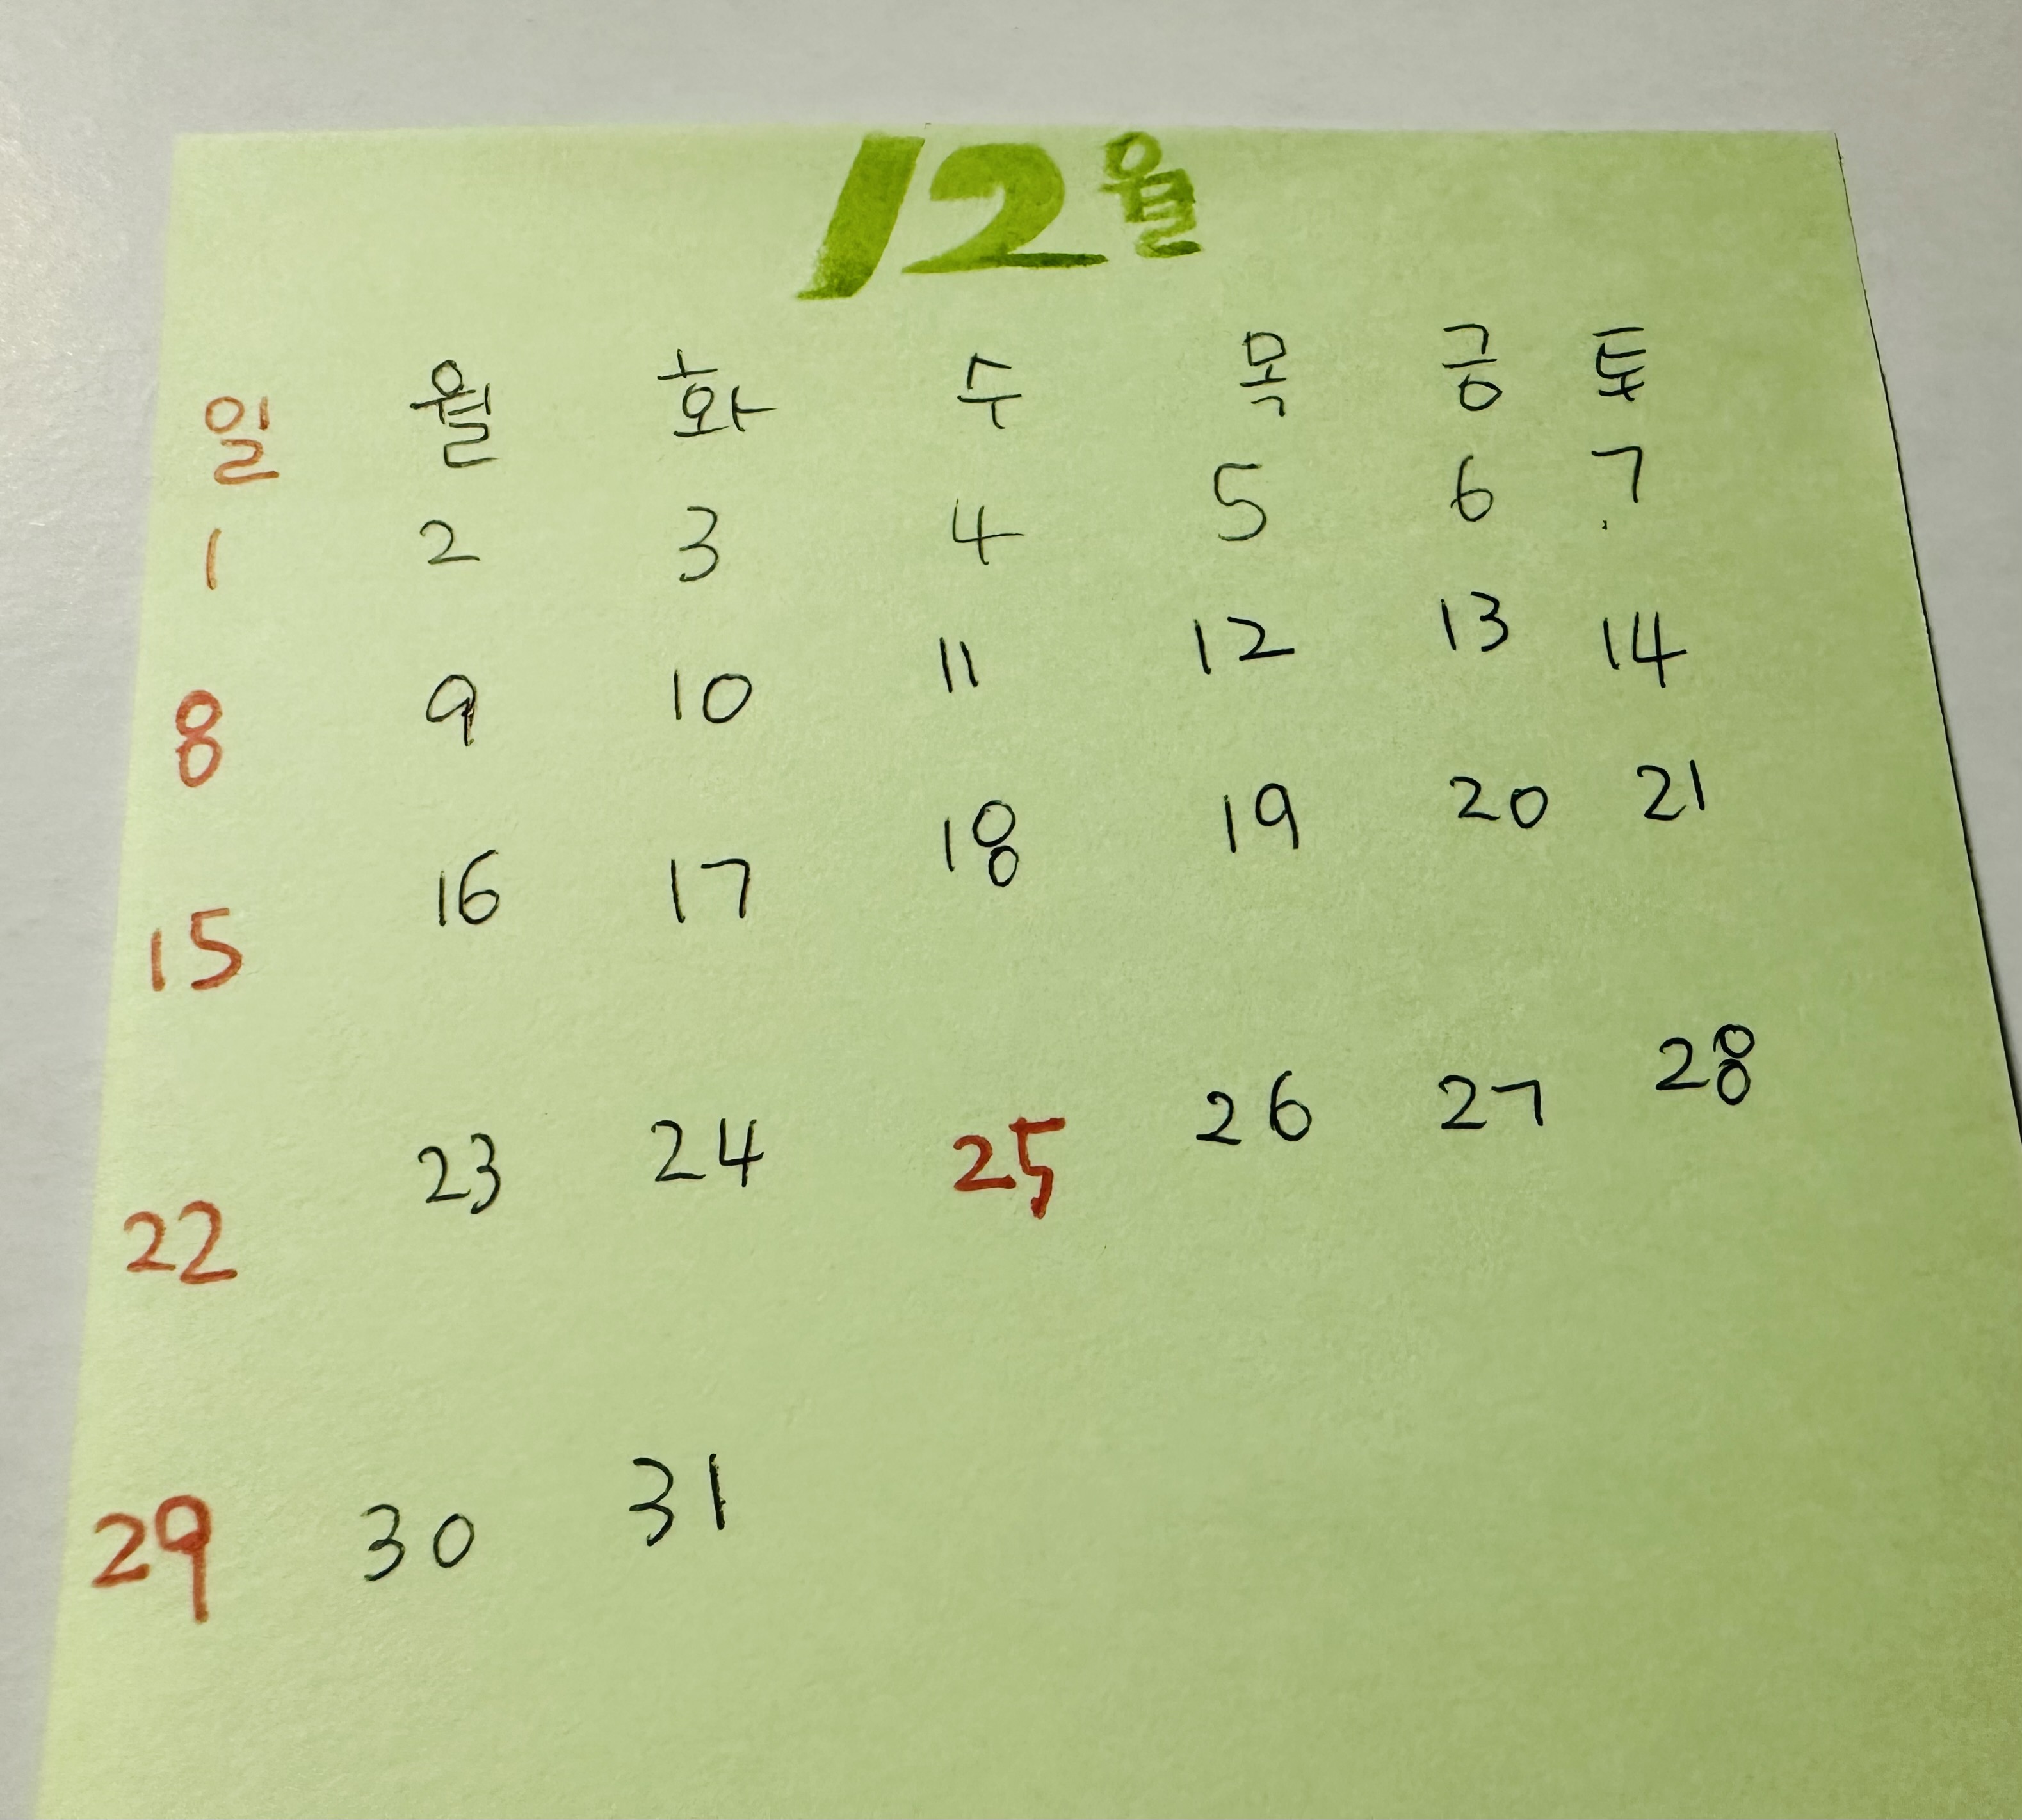 12월
일 월 화 수 목 긍 토
1 2 3 4 5 6 7
8 9 10 11 12 13 14
15 16 17 18 19 20 21
22 23 24 25 26 27 28
29 30 31